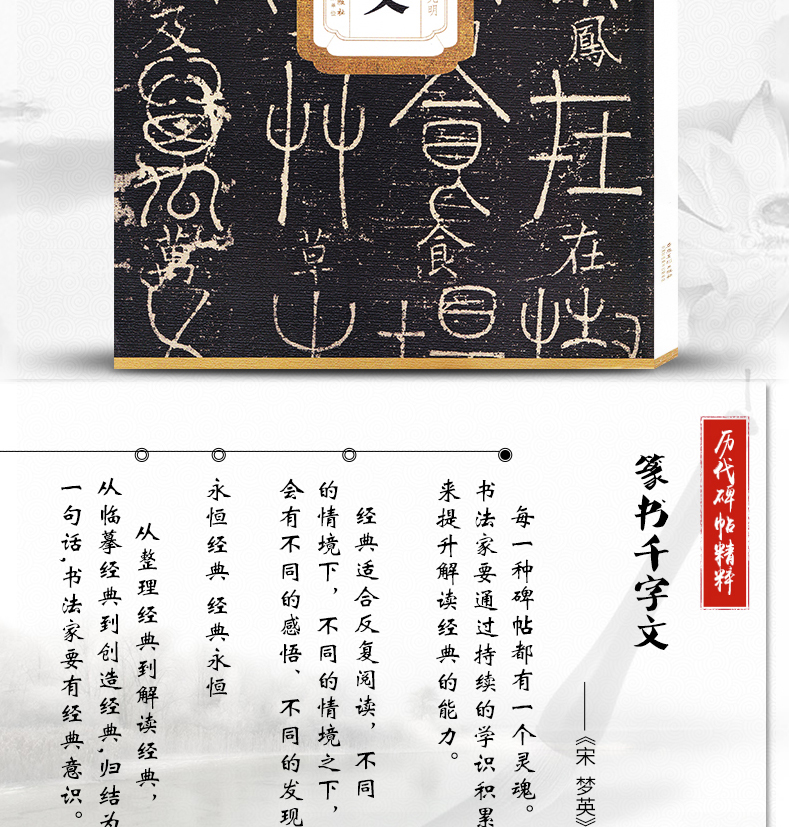 文
鳳
在
食
草
及
萬
历代碑帖精粹
篆书千字文
——《宋 梦英》
每一种碑帖都有一个灵魂。
书法家要通过持续的学识积累
来提升解读经典的能力。
经典适合反复阅读，不同
的情境下，不同的情境之下，
会有不同的感悟、不同的发现
永恒经典 经典永恒
从整理经典到解读经典，
从临摹经典到创造经典,归结为
一句话,书法家要有经典意识。